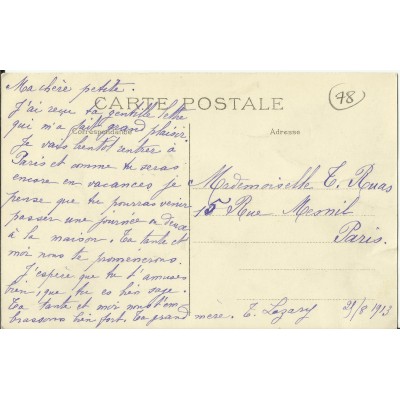 Ma chère petite.
CARTE POSTALE
48
Correspondance
Adresse
J'ai reçu ta gentille lettre
qui m'a fait grand plaisir.
Je vais bientôt rentrer à
Paris et comme tu seras
encore en vacances je
pense que tu pourras venir
passer une journée ou deux
à la maison. Ta tante et
moi nous te promenerons.
J'espère que tu t'amuses
bien, que tu es très sage.
Ta tante et moi nous t'em
brassons bien fort. Ta grand mère. T. Lazary
Mademoiselle T. Ruas
15 Rue Mesnil
Paris.
29/8 1913